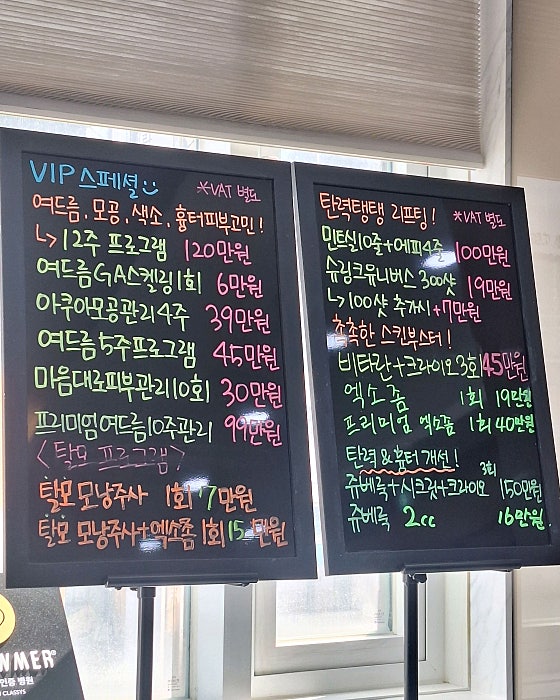 VIP 스페셜 *VAT 별도
여드름, 모공, 색소, 흉터피부고민!
↳ 12주 프로그램 120만원
여드름GA스케링1회 6만원
아쿠아모공관리4주 39만원
여드름5주프로그램 45만원
마음대로피부관리10회 30만원
프리미엄여드름10주관리 99만원
<탈모 프로그램>
탈모 모낭주사 1회 7만원
탈모 모낭주사+엑소좀 1회 15만원
탄력탱탱 리프팅! *VAT 별도
민트실10줄+에피4줄 100만원
슈링크유니버스 300샷 19만원
↳100샷 추가시 +7만원
촉촉한 스킨부스터!
비타란+크라이오3회 45만원
엑소좀 1회 19만원
프리미엄 엑소좀 1회 40만원
탄력 & 흉터 개선!
쥬베룩+시크릿+크라이오 3회 150만원
쥬베룩 2cc 16만원
인증 병원
CLASSYS